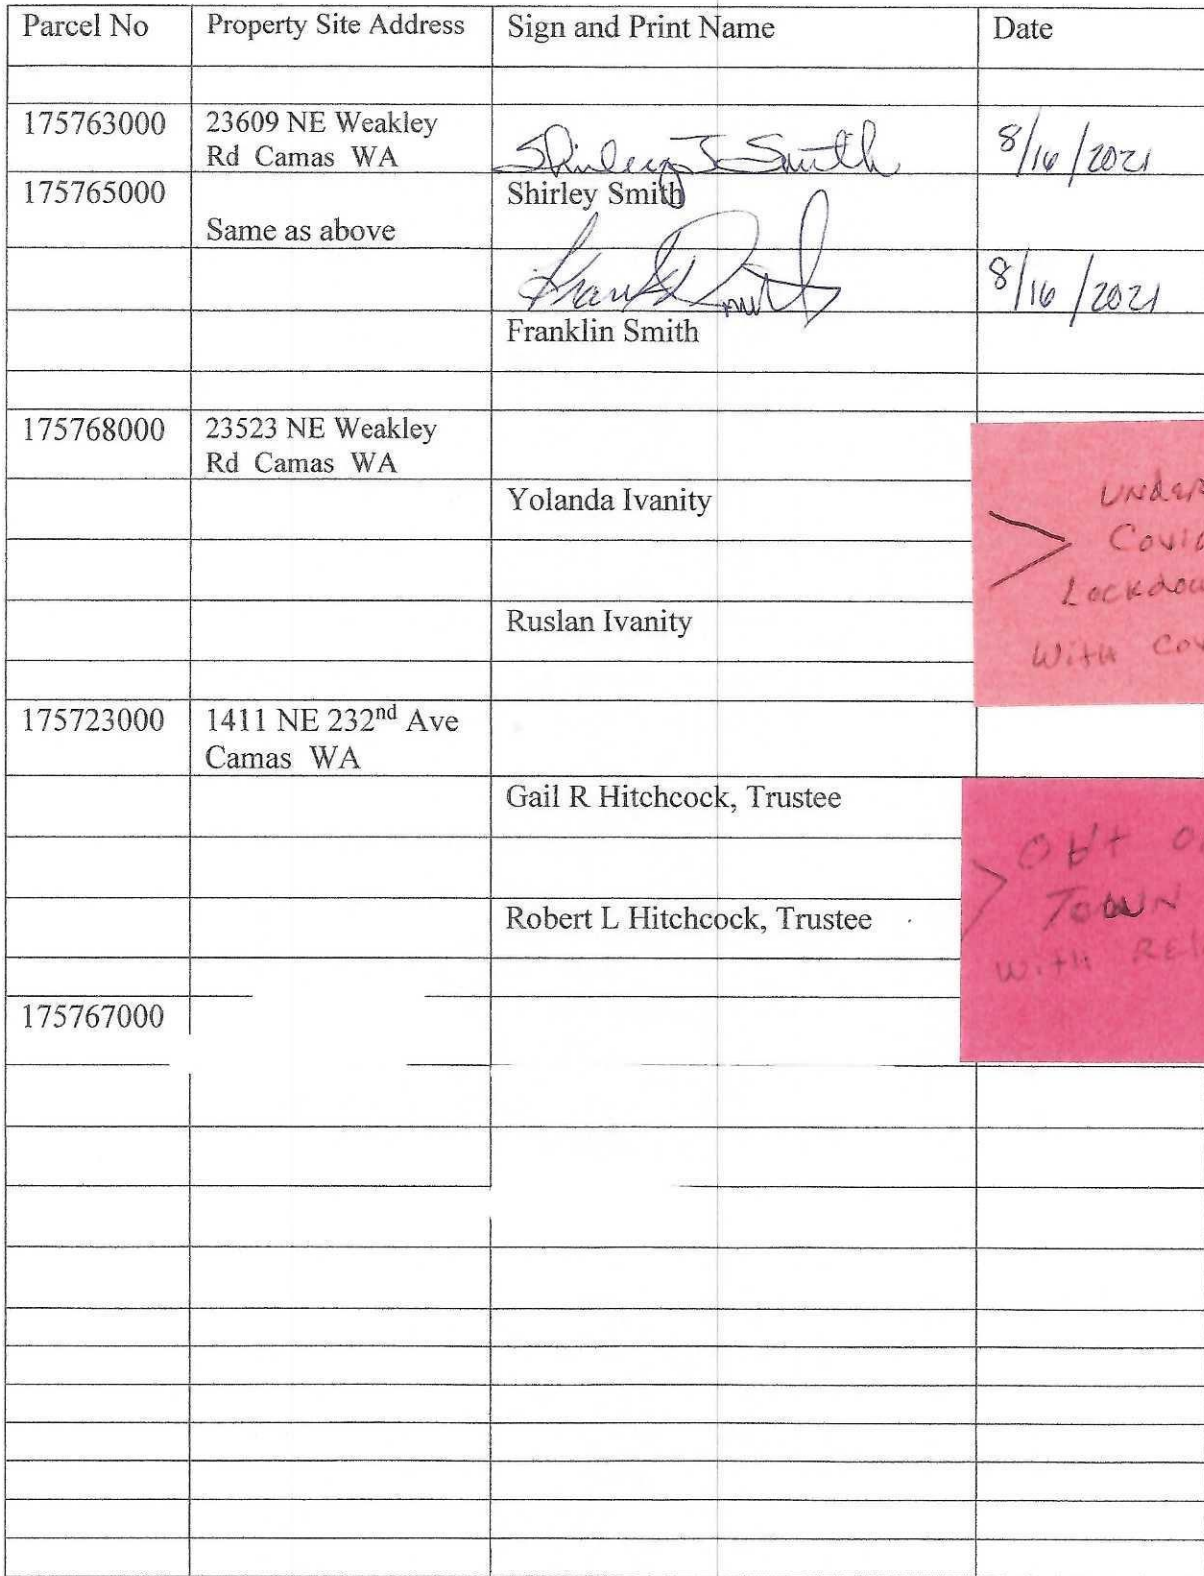 Parcel No Property Site Address Sign and Print Name Date
175763000 23609 NE Weakley
Rd Camas WA Shirley J Smith 8/16/2021
175765000 Shirley Smith
Same as above
Frank Smith 8/16/2021
Franklin Smith
175768000 23523 NE Weakley
Rd Camas WA
Yolanda Ivanity
Under
Covid
Lockdow
Ruslan Ivanity
With Cov
175723000 1411 NE 232nd Ave
Camas WA
Gail R Hitchcock, Trustee
Robert L Hitchcock, Trustee
TOWN
With REL
175767000